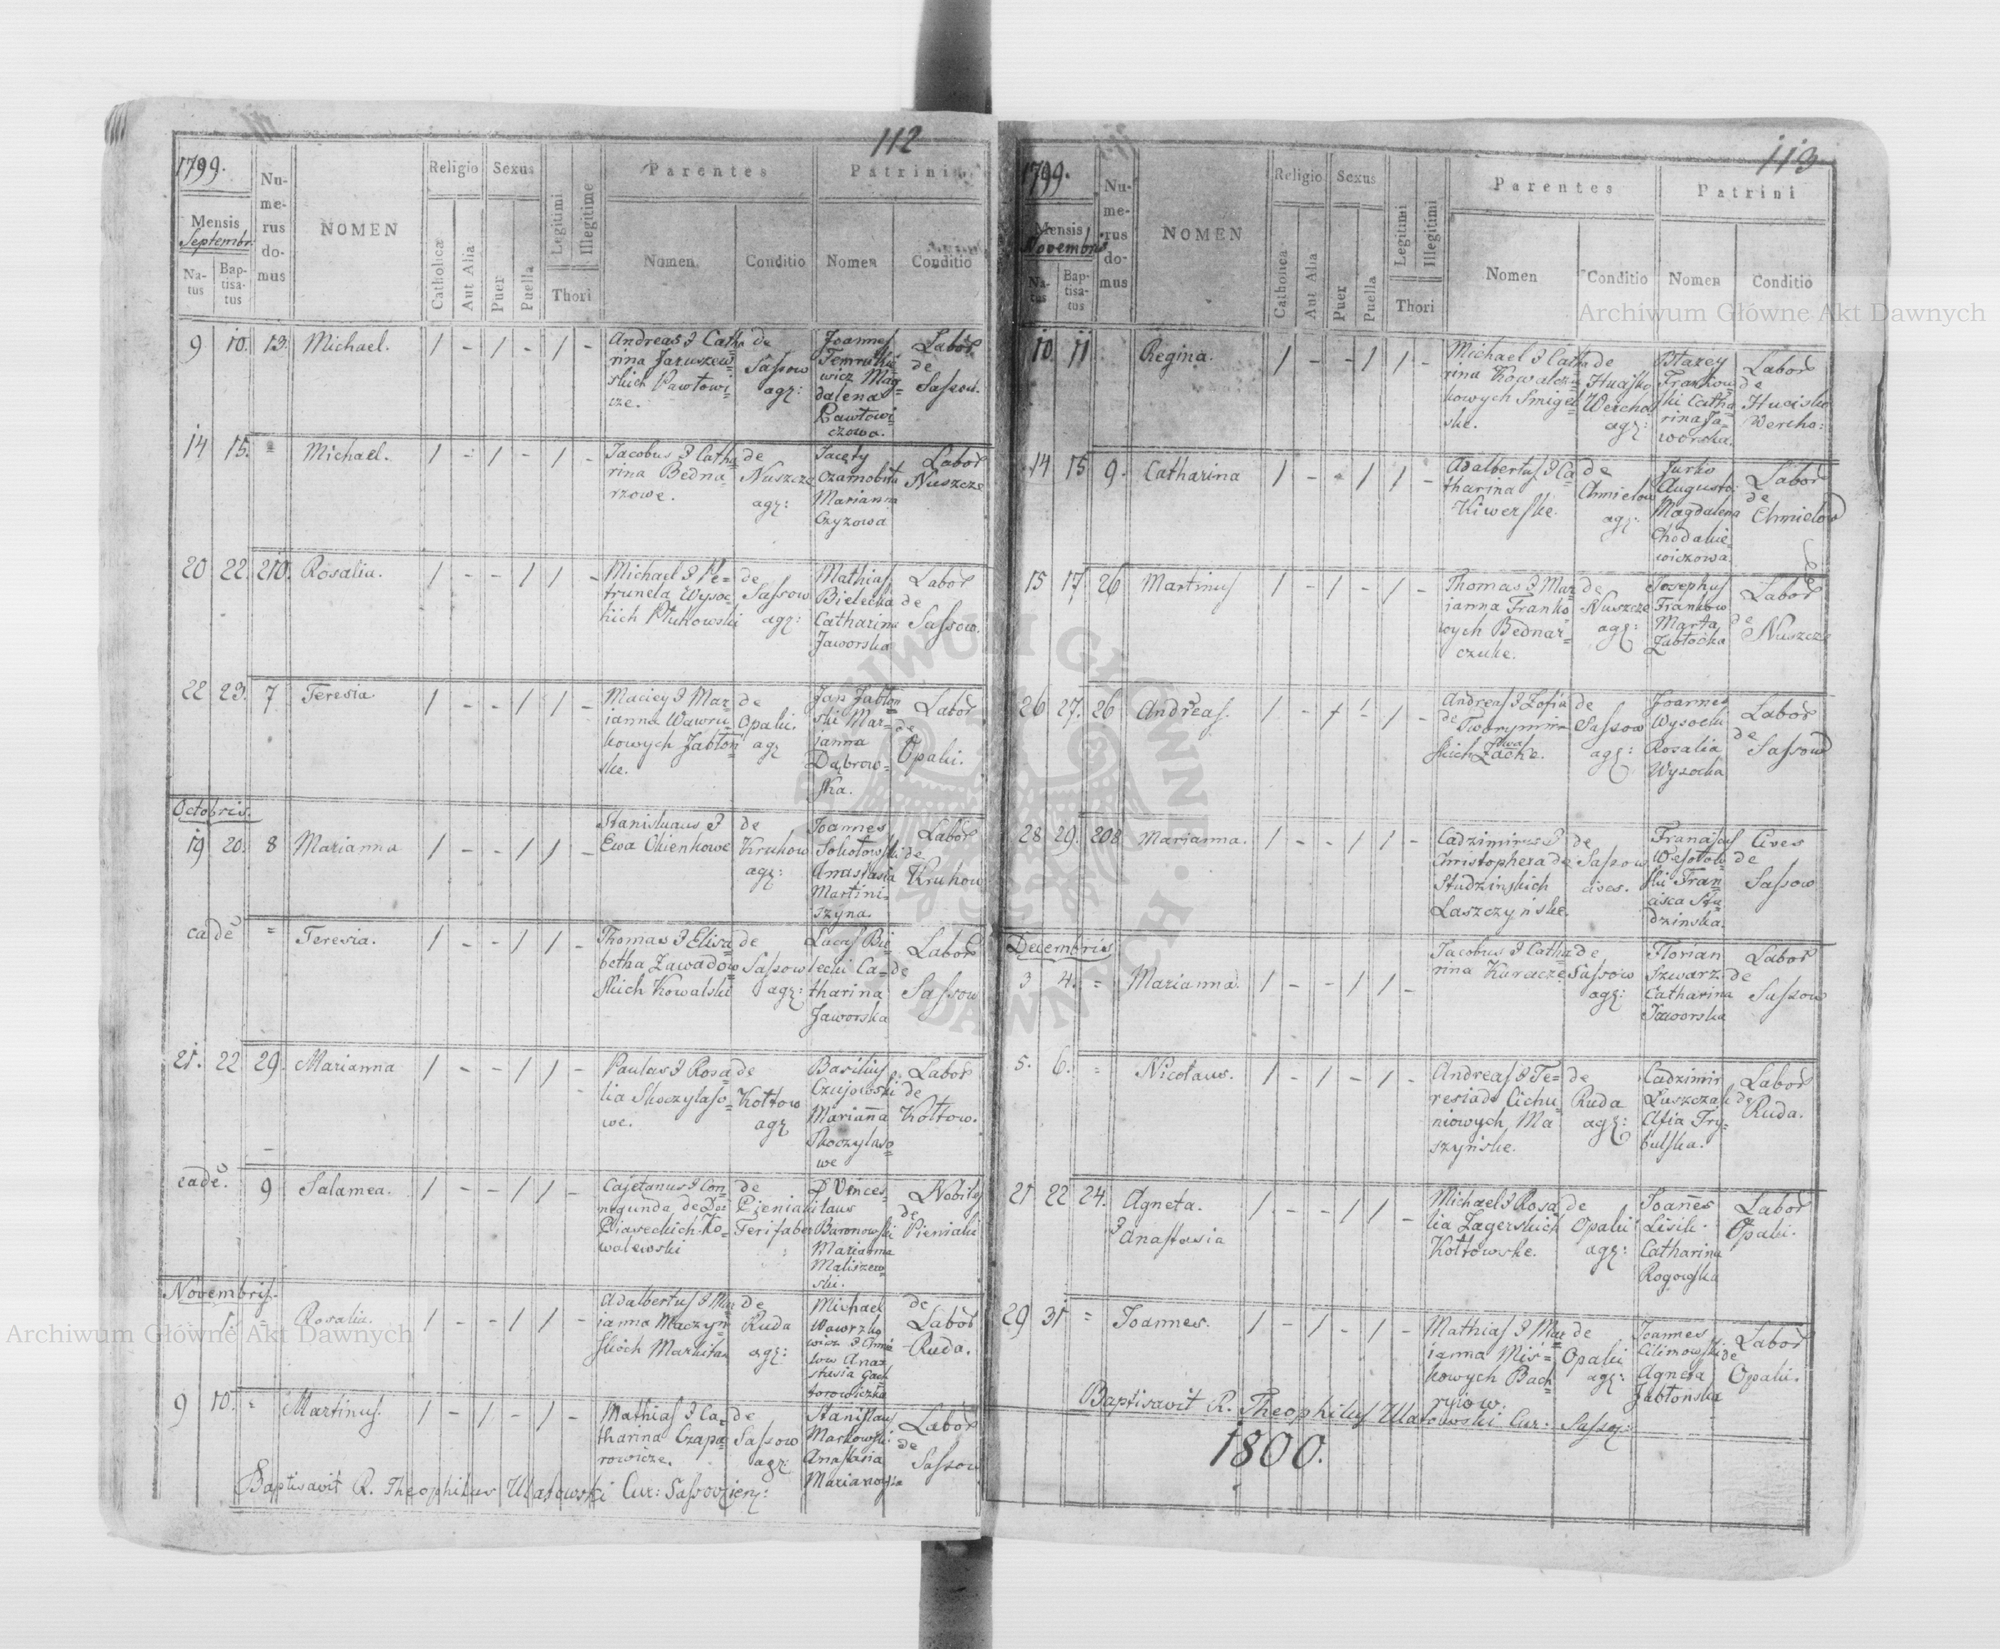 112
1799.
Mensis
Septembr:
Natus
Baptisatus
Numerus domus
NOMEN
Religio
Catholica
Aut Alia
Sexus
Puer
Puella
Legitimi
Illegitime
Thori
Parentes
Nomen
Conditio
Patrini
Nomen
Conditio
9 10. 13. Michael. 1 - 1 - 1 -
Andreas & Catha
rina Jaruszew=
skich Pawłowi=
cze.
de
Sassow
agr:
Joannes
wicz Mag=
dalena
Pawłowi=
czowa.
Labor
de
Sassow.
14 15. = Michael. 1 - 1 - 1 -
Jacobus & Catha
rina Bedna=
rzowe.
de
Nuszcze
agr:
Jacety
Marianna
Czyzowa
Labor
Nuszcze
20 22. 210. Rosalia. 1 - - 1 1 -
Michael & Pe=
trunela Wysoc=
kich Ptukowski
de
Sassow
agr:
Mathias
Bielecki
Catharina
Jaworska
Labor
de
Sassow.
22 23. 7 Teresia. 1 - - 1 1 -
Maciey & Mar=
ianna Wawru
kowych Jabłoń
ske.
de
Opaki.
agr
Jan Jabłon
ski Mar=
janna
Dąbrow=
ska.
Labor
de
Opaki.
Octobris.
19 20. 8 Marianna 1 - - 1 1 -
Stanislaus &
Ewa Okienkowe
de
Kruhow
agr:
Joannes
Sokołowski
Anastasia
Martini=
szyna.
Labor
de
Kruhow
eade = Teresia. 1 - - 1 1 -
Thomas & Elisa
betha Zawadow
skich Kowalski
de
Sassow
agr:
Lucas Bie
lecki Ca=
tharina
Jaworska
Labor
de
Sassow
21. 22 29. Marianna 1 - - 1 1 -
Paulus & Rosa
lia Skoczylaso=
we.
de
Kołtow
agr
Basilius
Czujowski
Marianna
Skoczylaso=
we
Labor
de
Kołtow.
eade. 9 Salamea. 1 - - 1 1 -
Cajetanus & Con=
negunda de Do:
Piaseckich Ko=
walewski
de
Pieniaki
Ferifaber
D Vinces
laus
Baronowski
Marianna
Maliszew=
ski.
Nobily
de
Pieniaki
Novembris.
1. = Rosalia. 1 - - 1 1 -
Adalbertus & Mar
ianna Maczyń
skich
de
Ruda
agr:
Michael
Wawrzko
wicz
stasia
de
Labor
Ruda.
9 10. = Martinus. 1 - 1 - 1 -
Mathias & Ca=
tharina Czapa=
rowicze.
de
Sassow
agr:
Stanislaus
Markowski
Anastasia
Labor
de
Sassow
Baptisavit R. Theophilus Ulatowski Cur: Sassovien:
113
1799.
Mensis
Novembris
Natus
Baptisatus
Numerus domus
NOMEN
Religio
Catholica
Aut Alia
Sexus
Puer
Puella
Legitimi
Illegitimi
Thori
Parentes
Nomen
Conditio
Patrini
Nomen
Conditio
10. 11 Regina. 1 - - 1 1 -
Michael & Catha
rina Kowalczu
kowych Smigel=
ske.
de
Hucisko
Wercho
agr:
Błazey
Frankow=
ski Catha
rina Ja=
worska.
Labor
de
Hucisko
Wercho:
14 15 9. Catharina 1 - - 1 1 -
Adalbertus & Ca
tharina
Kiwerske.
de
Chmielow
agr:
Jurko
Augusto:
Magdalena
Chodakie=
wiczowa.
Labor
de
Chmielow
15 17. 26 Martinus 1 - 1 - 1 -
Thomas & Mar=
ianna Franko
wych Bednar=
czuke.
de
Nuszcze
agr:
Josephus
Frankow
Marta
Zabłocka
Labor
de
Nuszcze
26 27. 26 Andreas. 1 - 1 - 1 -
Andreas & Zofia
de
skich Zacke.
de
Sassow
agr:
Joannes
Wysocki
Rosalia
Wysocka
Labor
de
Sassow
28 29. 208. Marianna. 1 - - 1 1 -
Cadzimirus &
Christophera de
Studzinskich
Laszczyńske.
de
Sassow.
cives.
Franciscus
Wesołow
ski Fran=
cisca Stu=
dzinska.
Cives
de
Sassow
Decembris
3 4. = Marianna. 1 - - 1 1 -
Jacobus & Catha
rina Kuracze
de
Sassow
agr:
Florian
Szwarz
Catharina
Jaworska
Labor
de
Sassow
5. 6. = Nicolaus. 1 - 1 - 1 -
Andreas & Te=
resia de Cichu=
niowych Ma
szyńske.
de
Ruda
agr:
Cadzimir
Łuszczak
Afia Try=
bulska.
Labor
de
Ruda.
21 22 24. Agneta.
& Anastasia
1 - - 1 1 -
Michael & Rosa
lia Zagerskich
Kołtowske.
de
Opaki
agr:
Joannes
Lisik.
Catharina
Rogowska
Labor
Opaki.
29 31 = Joannes. 1 - 1 - 1 -
Mathias & Mar
ianna Mis=
kowych Bach
rylow.
de
Opaki
agr:
Joannes
Klimowski
Agneta
Jabłońska
Labor
de
Opaki.
Baptisavit R. Theophilus Ulatowski Cur: Sassov:
1800.
Archiwum Główne Akt Dawnych
Archiwum Główne Akt Dawnych
ARCHIWUM GŁÓWNE AKT DAWNYCH